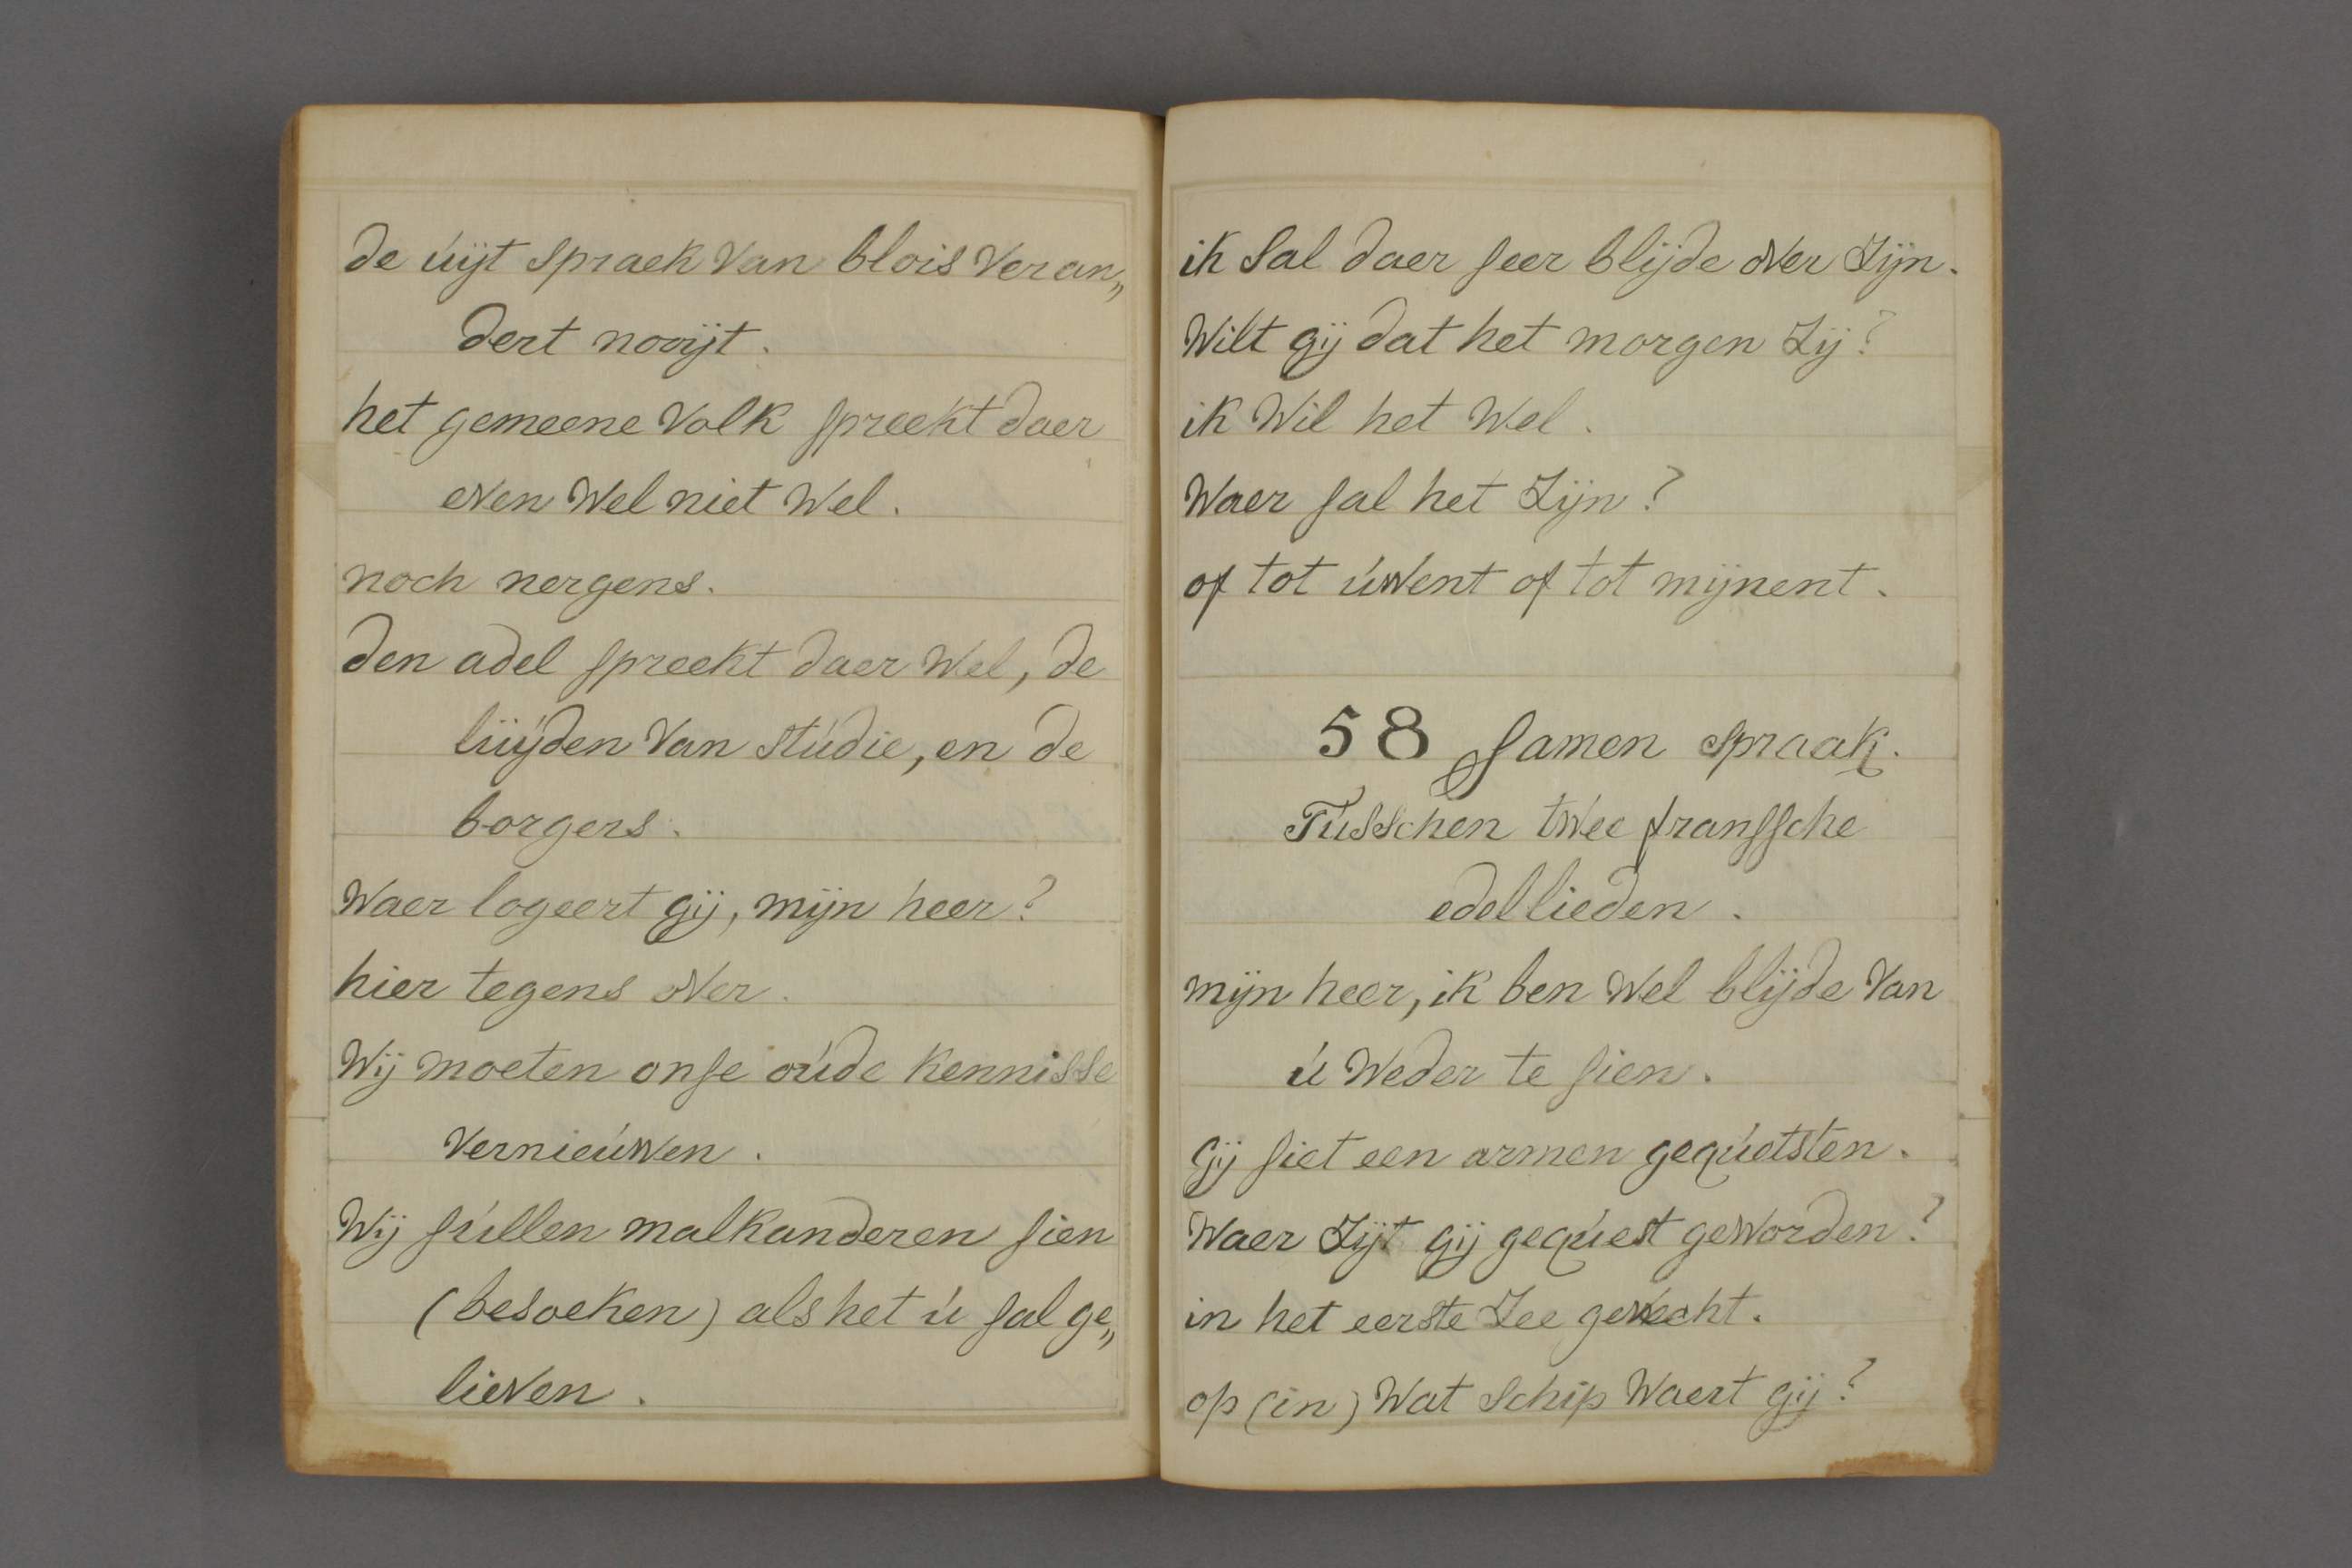 de úijt spraek van blois veran„
dert nooijt.
het gemeene volk spreekt daer
even wel niet wel.
noch nergens.
den adel spreekt daer wel, de
lúijden van stúdie, en de
borgers.
Waer logeert gij, mijn heer?
hier tegens over.
Wij moeten onse oúde kennisse
vernieúwen.
Wij súllen malkanderen sien
(besoeken) als het ú sal ge„
lieven.
ik sal daer seer blijde over zijn.
Wilt gij dat het morgen zij?
ik wil het wel.
Waer sal het zijn?
of tot úwent of tot mijnent.
58 Samen spraak.
Tússchen twee franssche
edellieden.
mijn heer, ik ben wel blijde van
ú weder te sien.
Gij siet een armen geqúetsten.
Waer zijt gij geqúest geworden?
in het eerste zee gevecht.
op (in) wat schip waert gij?